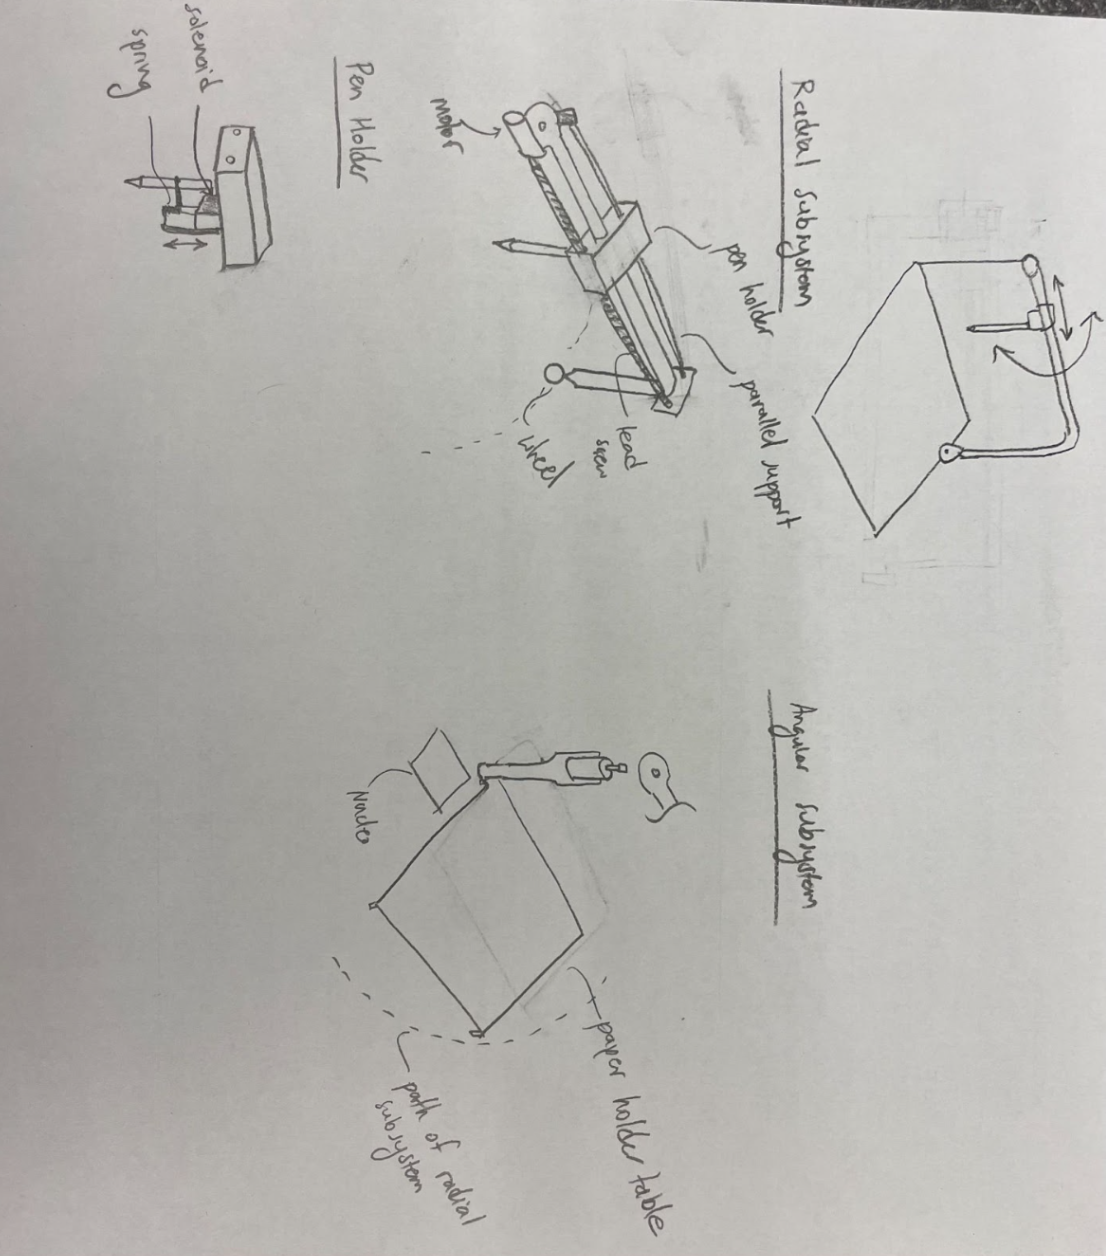 Radial subsystem
pen holder
parallel support
motor
lead
screw
wheel
Pen Holder
solenoid
spring
Angular subsystem
paper holder table
Nucleo
path of radial
subsystem